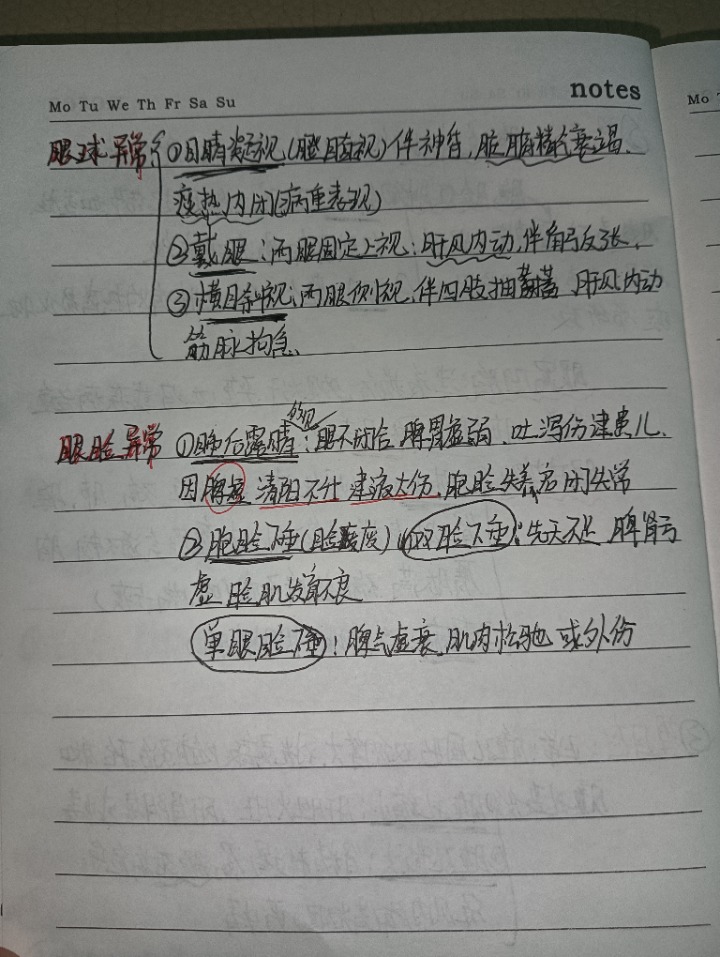 notes
Mo Tu We Th Fr Sa Su
Mo
眼球异常 ①目睛凝视(瞪目直视)伴神昏,脏腑精气衰竭、
痰热内闭(病重表现)
②戴眼:两眼固定上视:肝风内动,伴角弓反张,
③横目斜视:两眼侧视,伴四肢抽搐 肝风内动
筋脉拘急、
常见
眼睑异常 ①睡后露睛:眼不闭合 脾胃虚弱、吐泻伤津患儿、
因脾虚 清阳不升 津液大伤,胞睑失养启闭失常
②胞睑下垂(睑废) 双睑下垂:先天不足 脾肾亏
虚 睑肌发育不良
单眼睑下垂:脾气虚衰、肌肉松弛 或外伤